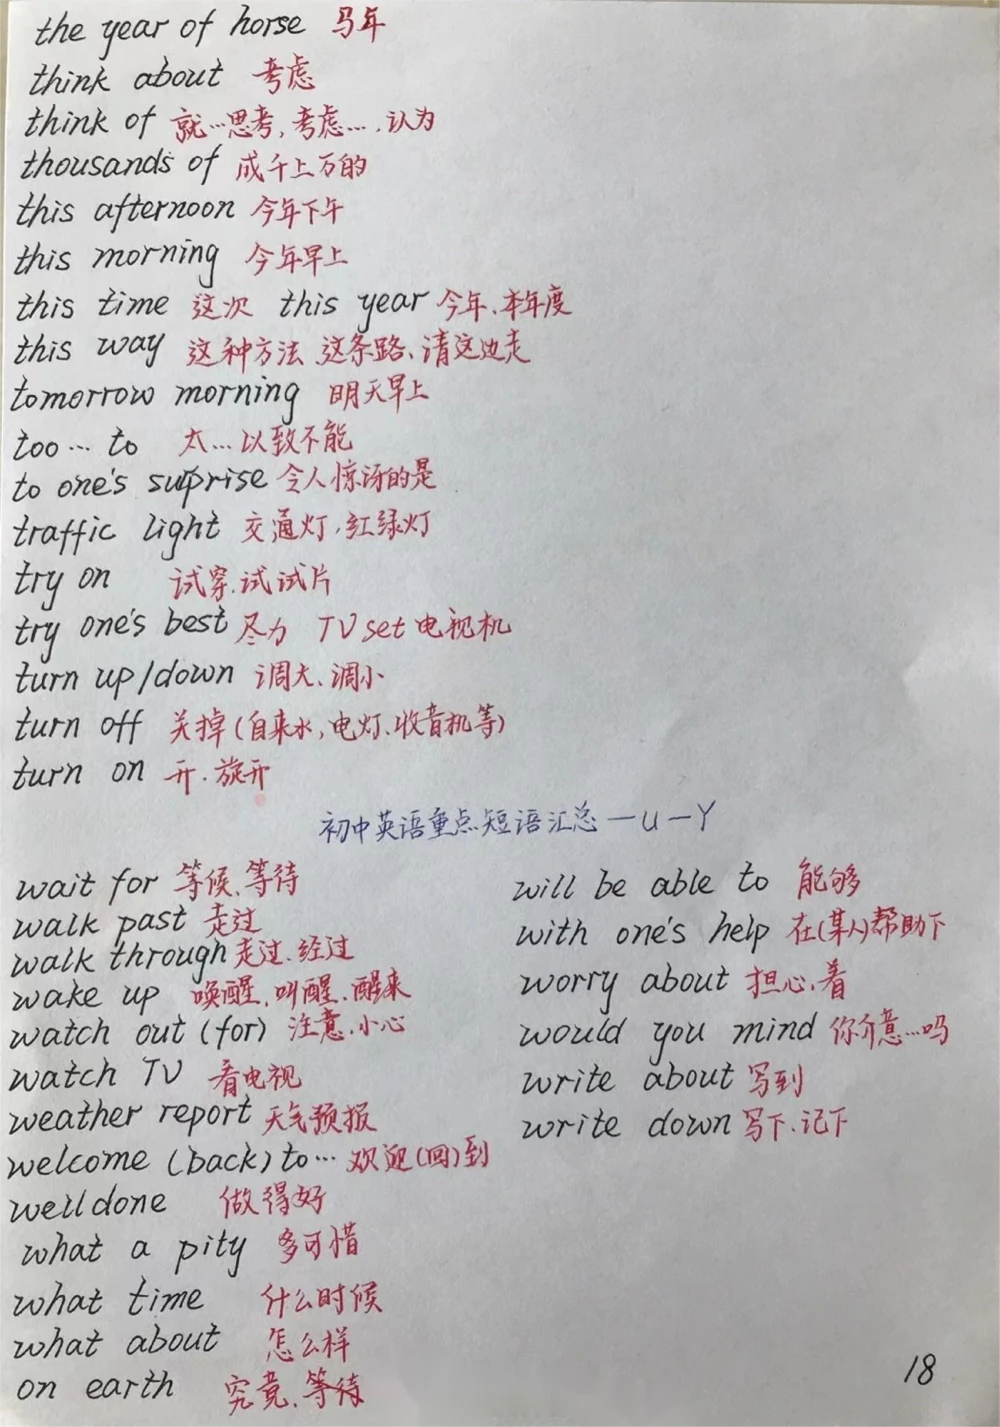 the year of horse 马年
think about 考虑
think of 就…思考,考虑…,认为
thousands of 成千上万的
this afternoon 今年下午
this morning 今年早上
this time 这次 this year 今年、本年度
this way 这种方法 这条路、请这边走
tomorrow morning 明天早上
too… to 太…以致不能
to one's surprise 令人惊讶的是
traffic light 交通灯,红绿灯
try on 试穿.试试片
try one's best 尽力 TV set 电视机
turn up/down 调大、调小
turn off 关掉(自来水,电灯、收音机等)
turn on 开.旋开
初中英语重点短语汇总—U—Y
wait for 等候、等待
walk past 走过
walk through 走过.经过
wake up 唤醒,叫醒.醒来
watch out (for) 注意.小心
watch TV 看电视
weather report 天气预报
welcome (back) to… 欢迎(回)到
well done 做得好
what a pity 多可惜
what time 什么时候
what about 怎么样
on earth 究竟、等待
will be able to 能够
with one's help 在(某人)帮助下
worry about 担心,着
would you mind 你介意…吗
write about 写到
write down 写下.记下
18